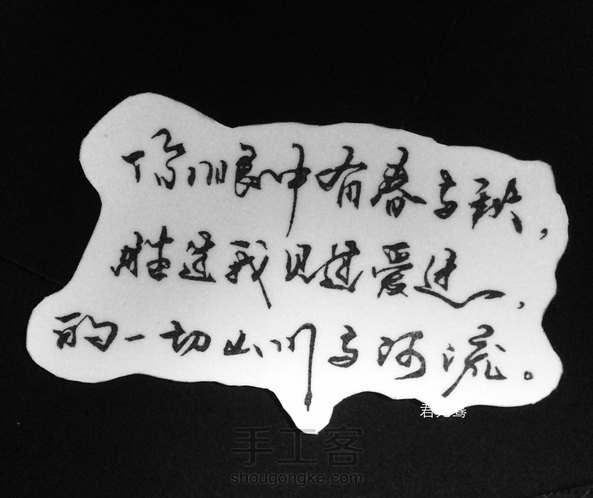 你眼中有春与秋，
胜过我见过爱过，
的一切山川与河流。
手工客
shougongke.com